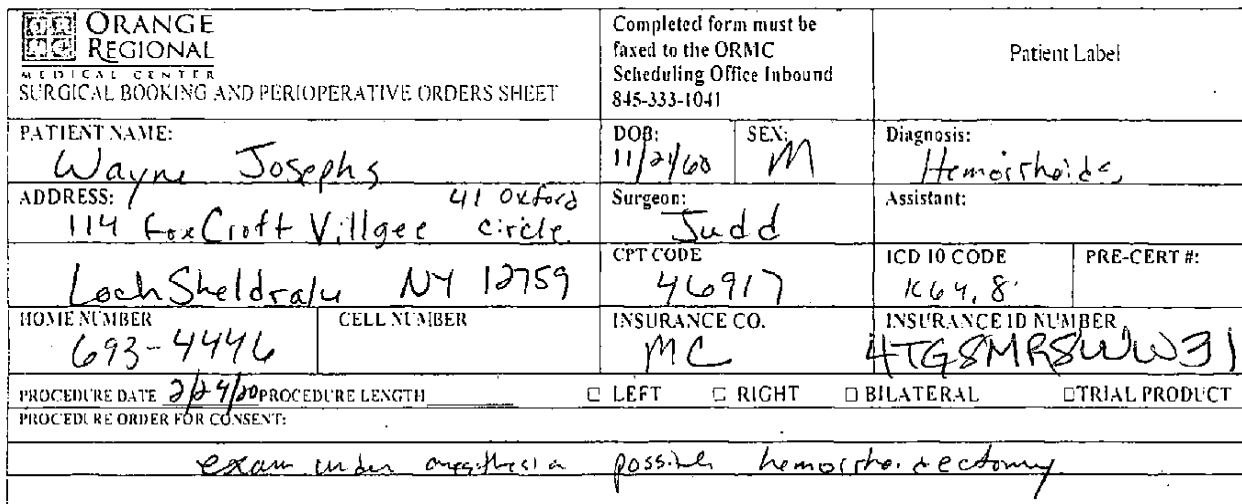 ORANGE
REGIONAL
MEDICAL CENTER
SURGICAL BOOKING AND PERIOPERATIVE ORDERS SHEET
Completed form must be
faxed to the ORMC
Scheduling Office Inbound
845-333-1041
Patient Label
PATIENT NAME:
Wayne Josephs
DOB:
11/21/60
SEX:
M
Diagnosis:
Hemorrhoids
ADDRESS:
41 Oxford
114 FoxCroft Villgee circle
Surgeon:
Judd
Assistant:
Loch Sheldrake NY 12759
CPT CODE
46917
ICD 10 CODE
K64.8
PRE-CERT #:
HOME NUMBER
693-4446
CELL NUMBER
INSURANCE CO.
MC
INSURANCE ID NUMBER
4TG8MR8WW31
PROCEDURE DATE 2/24/20 PROCEDURE LENGTH
LEFT RIGHT BILATERAL TRIAL PRODUCT
PROCEDURE ORDER FOR CONSENT:
exam under anesthesia possible hemorrhoidectomy